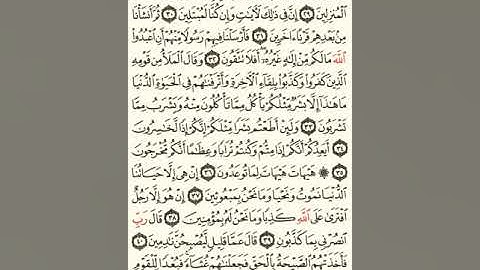 ٱلۡمُنزِلِينَ ٢٩ إِنَّ فِي ذَٰلِكَ لَأٓيَٰتٖ وَإِن كُنَّا لَمُبۡتَلِينَ ٣٠ ثُمَّ أَنشَأۡنَا
مِنۢ بَعۡدِهِمۡ قَرۡنًا ءَاخَرِينَ ٣١ فَأَرۡسَلۡنَا فِيهِمۡ رَسُولٗا مِّنۡهُمۡ أَنِ ٱعۡبُدُواْ
ٱللَّهَ مَا لَكُم مِّنۡ إِلَٰهٍ غَيۡرُهُۥٓۚ أَفَلَا تَتَّقُونَ ٣٢ وَقَالَ ٱلۡمَلَأُ مِن قَوۡمِهِ
ٱلَّذِينَ كَفَرُواْ وَكَذَّبُواْ بِلِقَآءِ ٱلۡأٓخِرَةِ وَأَتۡرَفۡنَٰهُمۡ فِي ٱلۡحَيَوٰةِ ٱلدُّنۡيَا
مَا هَٰذَآ إِلَّا بَشَرٞ مِّثۡلُكُمۡ يَأۡكُلُ مِمَّا تَأۡكُلُونَ مِنۡهُ وَيَشۡرَبُ مِمَّا
تَشۡرَبُونَ ٣٣ وَلَئِنۡ أَطَعۡتُم بَشَرٗا مِّثۡلَكُمۡ إِنَّكُمۡ إِذٗا لَّخَٰسِرُونَ
٣٤ أَيَعِدُكُمۡ أَنَّكُمۡ إِذَا مِتُّمۡ وَكُنتُمۡ تُرَابٗا وَعِظَٰمًا أَنَّكُم مُّخۡرَجُونَ
٣٥ ۞ هَيۡهَاتَ هَيۡهَاتَ لِمَا تُوعَدُونَ ٣٦ إِنۡ هِيَ إِلَّا حَيَاتُنَا
ٱلدُّنۡيَا نَمُوتُ وَنَحۡيَا وَمَا نَحۡنُ بِمَبۡعُوثِينَ ٣٧ إِنۡ هُوَ إِلَّا رَجُلٌ
ٱفۡتَرَىٰ عَلَى ٱللَّهِ كَذِبٗا وَمَا نَحۡنُ لَهُۥ بِمُؤۡمِنِينَ ٣٨ قَالَ رَبِّ
ٱنصُرۡنِي بِمَا كَذَّبُونِ ٣٩ قَالَ عَمَّا قَلِيلٖ لَّيُصۡبِحُنَّ نَٰدِمِينَ ٤٠
فَأَخَذَتۡهُمُ ٱلصَّيۡحَةُ بِٱلۡحَقِّ فَجَعَلۡنَٰهُمۡ غُثَآءٗۚ فَبُعۡدٗا لِّلۡقَوۡمِ